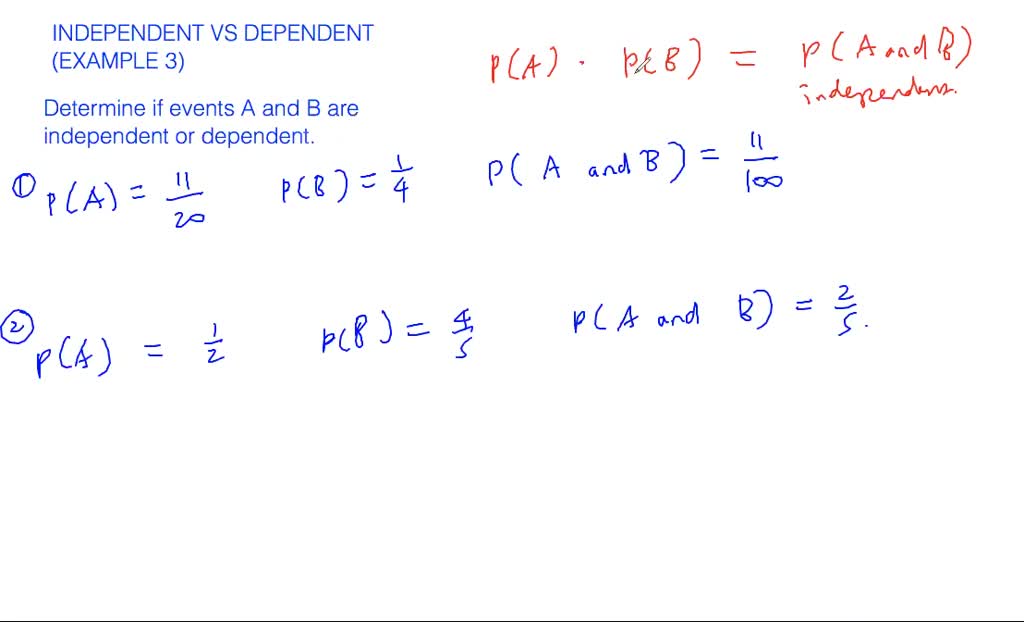 INDEPENDENT VS DEPENDENT
(EXAMPLE 3)
P(A) · P(B) = P(A and B)
independent.
Determine if events A and B are
independent or dependent.
① P(A) = 11/20 P(B) = 1/4 P(A and B) = 11/100
② P(A) = 1/2 P(B) = 4/5 P(A and B) = 2/5.